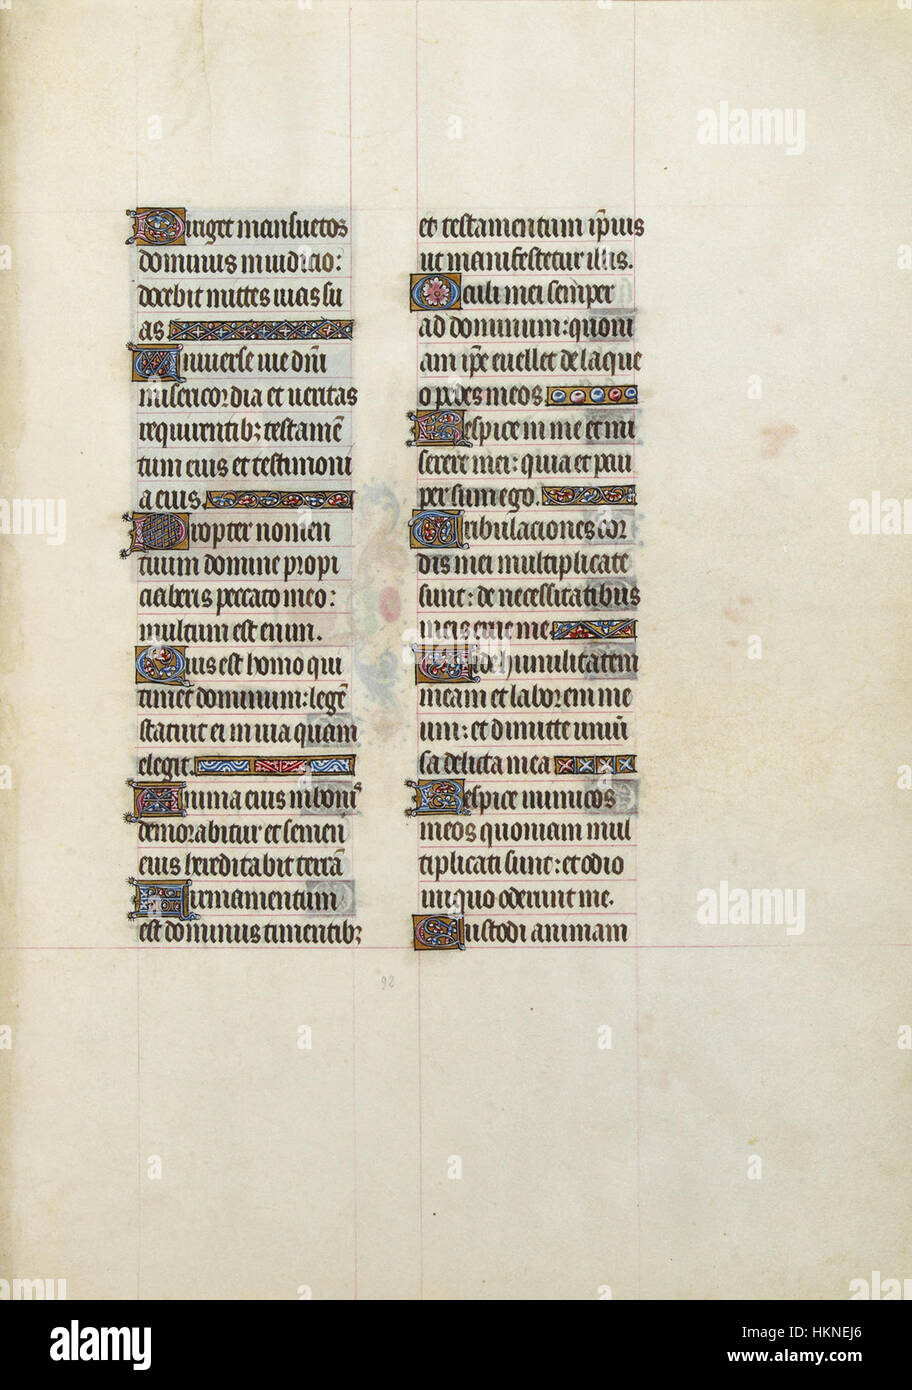 Diriget mansuetos
dominus in iudicio:
docebit mittes uias su
as
Uniuerse uie dn̄i
misericordia et ueritas
requirentib; testamē
tum eius et testimoni
a eius.
Propter nomen
tuum domine propi
ciaberis peccato meo:
multum est enim.
Quis est homo qui
timet dominum: legē
statuit ei in uia quam
elegit.
Anima eius in boniˢ
demorabitur et semen
eius hereditabit terrā
Firmamentum
est dominus timentib;
et testamentum ip̄ius
ut manifestetur illis.
Oculi mei semper
ad dominum: quoni
am ip̄e euellet de laque
o pedes meos.
Respice in me et mi
serere mei: quia et pau
per sum ego.
Tribulaciones cor
dis mei multiplicate
sunt: de necessitatibus
meis erue me
Uide humilitatem
meam et laborem me
um: et dimitte uniū
sa delicta mea
Respice inimicos
meos quoniam mul
tiplicati sunt: et odio
iniquo oderunt me.
Custodi animam
92
alamy
alamy
Image ID: HKNEJ6
www.alamy.com